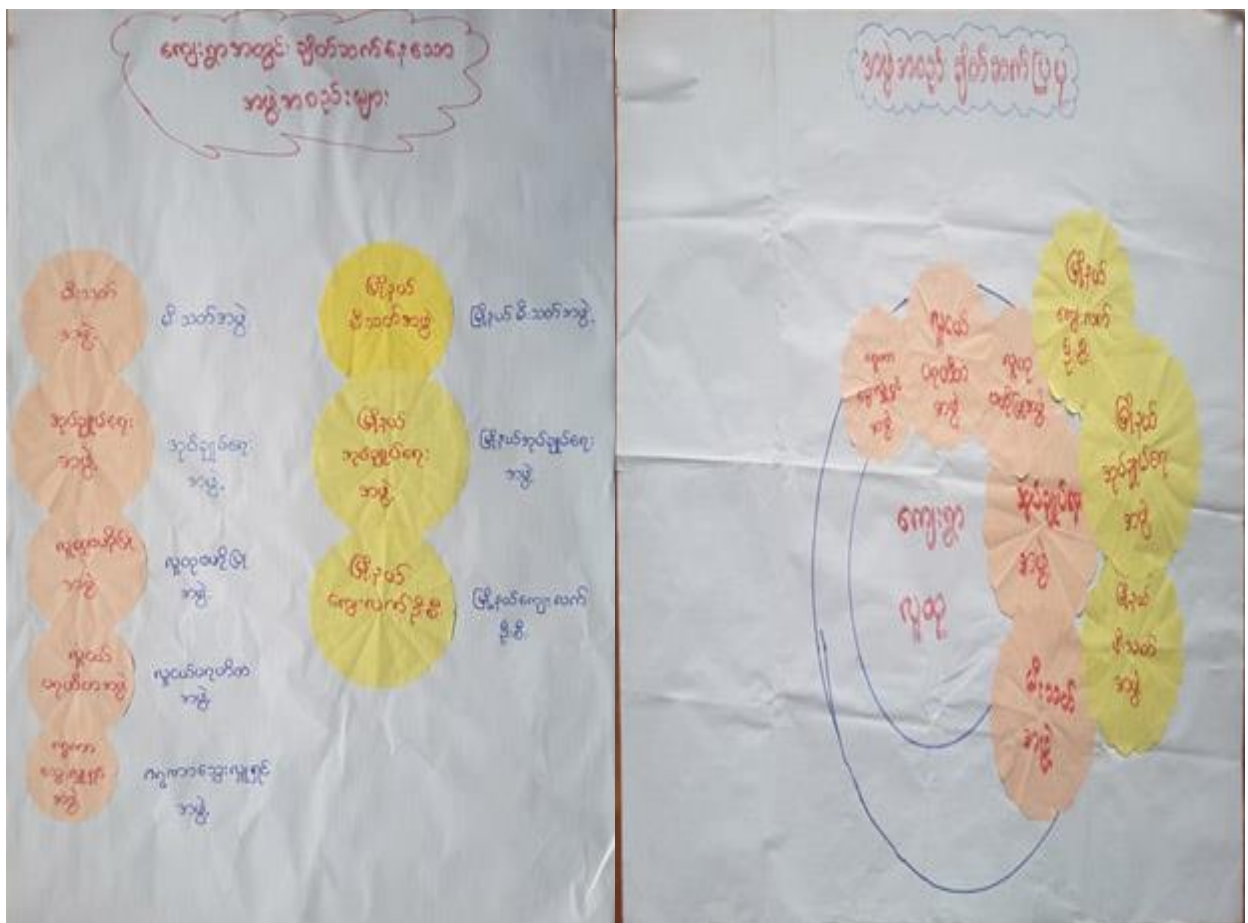 ကျေးရွာအတွင်း ချိတ်ဆက်နေသော
အဖွဲ့အစည်းများ
မီးသတ်
အဖွဲ့
မီးသတ်အဖွဲ့
အုပ်ချုပ်ရေး
အဖွဲ့
အုပ်ချုပ်ရေး
အဖွဲ့
လူထုဗဟိုပြု
အဖွဲ့
လူထုဗဟိုပြု
အဖွဲ့
လူငယ်
ပရဟိတအဖွဲ့
လူငယ်ပရဟိတ
အဖွဲ့
သွေးလှူရှင်
အဖွဲ့
သွေးလှူရှင်
အဖွဲ့
မြို့နယ်
မီးသတ်အဖွဲ့
မြို့နယ်မီးသတ်အဖွဲ့
မြို့နယ်
အုပ်ချုပ်ရေး
အဖွဲ့
မြို့နယ်အုပ်ချုပ်ရေး
အဖွဲ့
မြို့နယ်
ကျေးလက်ဦးစီး
မြို့နယ်ကျေးလက်
ဦးစီး
အဖွဲ့အစည်း ချိတ်ဆက်ပြပုံ
သွေးလှူရှင်
အဖွဲ့
လူငယ်
ပရဟိတ
အဖွဲ့
လူထု
ဗဟိုပြုအဖွဲ့
မြို့နယ်
ကျေးလက်
ဦးစီး
မြို့နယ်
အုပ်ချုပ်ရေး
အဖွဲ့
အုပ်ချုပ်ရေး
အဖွဲ့
ကျေးရွာ
လူထု
မြို့နယ်
မီးသတ်
အဖွဲ့
မီးသတ်
အဖွဲ့